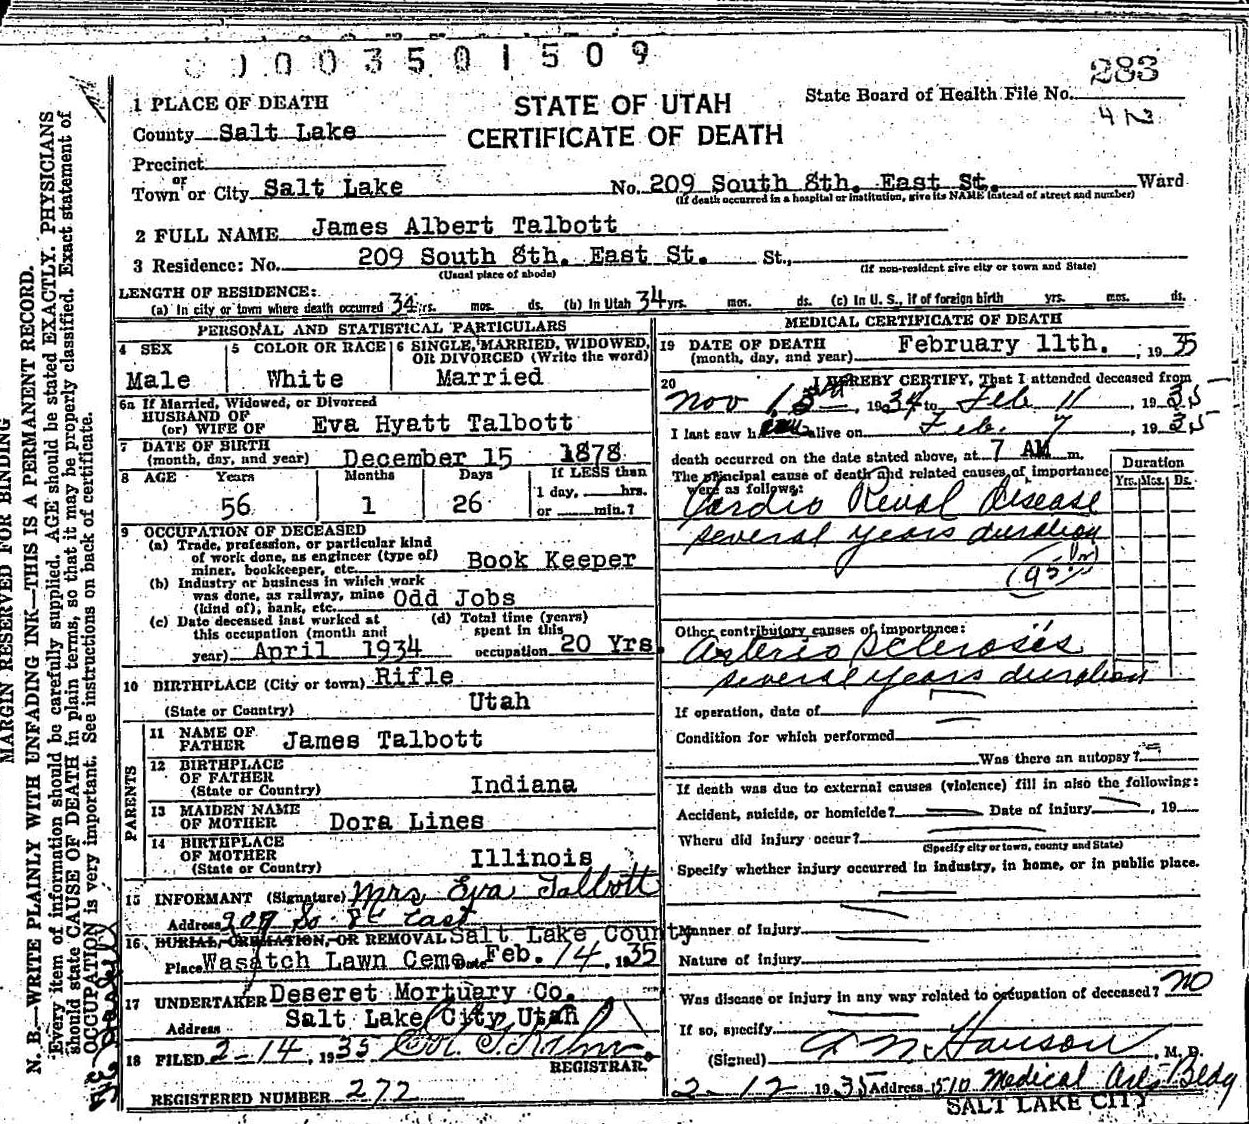 1003501509
283
1 PLACE OF DEATH
STATE OF UTAH
CERTIFICATE OF DEATH
State Board of Health File No.
County Salt Lake
Precinct
or
Town or City Salt Lake No. 209 South 8th. East St. Ward
(If death occurred in a hospital or institution, give its NAME instead of street and number)
2 FULL NAME James Albert Talbott
3 Residence: No. 209 South 8th. East St. St.,
(Usual place of abode) (If non-resident give city or town and State)
LENGTH OF RESIDENCE:
(a) In city or town where death occurred 34 yrs. mos. ds. (b) In Utah 34 yrs. mos. ds. (c) In U. S., if of foreign birth yrs. mos. ds.
PERSONAL AND STATISTICAL PARTICULARS
4 SEX 5 COLOR OR RACE 6 SINGLE, MARRIED, WIDOWED, OR DIVORCED (Write the word)
Male White Married
6a If Married, Widowed, or Divorced
HUSBAND OF
(or) WIFE OF Eva Hyatt Talbott
7 DATE OF BIRTH
(month, day, and year) December 15 1878
8 AGE Years Months Days If LESS than
56 1 26 1 day, hrs.
or min.?
9 OCCUPATION OF DECEASED
(a) Trade, profession, or particular kind
of work done, as engineer (type of)
miner, bookkeeper, etc. Book Keeper
(b) Industry or business in which work
was done, as railway, mine
(kind of), bank, etc. Odd Jobs
(c) Date deceased last worked at
this occupation (month and
year) April 1934
(d) Total time (years)
spent in this
occupation 20 Yrs.
10 BIRTHPLACE (City or town) Rifle
(State or Country) Utah
PARENTS
11 NAME OF
FATHER James Talbott
12 BIRTHPLACE
OF FATHER
(State or Country) Indiana
13 MAIDEN NAME
OF MOTHER Dora Lines
14 BIRTHPLACE
OF MOTHER
(State or Country) Illinois
15 INFORMANT (Signature) Mrs Eva Talbott
Address 209 So. 8th East
16 BURIAL, CREMATION, OR REMOVAL Salt Lake County
Place Wasatch Lawn Ceme Date Feb. 14, 1935
17 UNDERTAKER Deseret Mortuary Co.
Address Salt Lake City Utah
18 FILED 2-14, 1935
REGISTRAR.
REGISTERED NUMBER 272
MEDICAL CERTIFICATE OF DEATH
19 DATE OF DEATH
(month, day, and year) February 11th. , 1935
20 I HEREBY CERTIFY, That I attended deceased from
Nov 1934 to Feb 11, 1935
I last saw h alive on Feb. 7, 1935
death occurred on the date stated above, at 7 AM m.
The principal cause of death and related causes of importance
were as follows:
Duration
Yrs. Mos. Ds.
Cardio Renal Disease
several years duration
Other contributory causes of importance:
Arterio Sclerosis
several years duration
If operation, date of
Condition for which performed
Was there an autopsy?
If death was due to external causes (violence) fill in also the following:
Accident, suicide, or homicide? Date of injury , 19
Where did injury occur?
(Specify city or town, county and State)
Specify whether injury occurred in industry, in home, or in public place.
Manner of Injury
Nature of Injury
Was disease or injury in any way related to occupation of deceased? no
If so, specify
(Signed) Hanson, M. D.
2-12 1935 Address 510 Medical Arts Bldg
SALT LAKE CITY
MARGIN RESERVED FOR BINDING
N. B.—WRITE PLAINLY WITH UNFADING INK—THIS IS A PERMANENT RECORD.
Every item of information should be carefully supplied. AGE should be stated EXACTLY. PHYSICIANS
should state CAUSE OF DEATH in plain terms, so that it may be properly classified. Exact statement of
OCCUPATION is very important. See instructions on back of certificate.